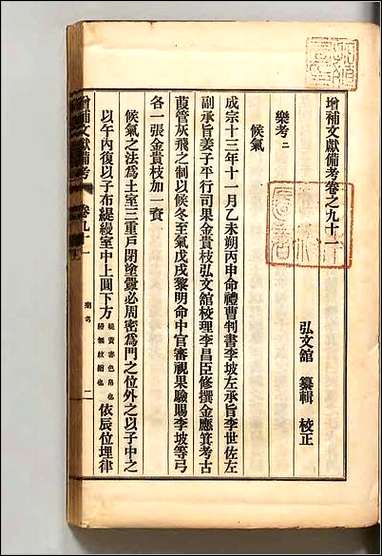 增補文獻備考卷之九十一
弘文館 纂輯 校正
樂考二
候氣
成宗十三年十一月乙未朔丙申命禮曹判書李坡左承旨李世佐左
副承旨姜子平行司果金貴枝弘文館校理李昌臣修撰金應箕考古
葭管灰飛之制以候冬至氣戊戌黎明命中官審視果驗賜李坡等弓
各一張金貴枝加一資
候氣之法爲土室三重戶閉塗釁必周密爲門之位外之以子中之
以午內復以子布緹縵室中上圓下方 依辰位埋律
增補文獻備考 卷九十一
樂考
二